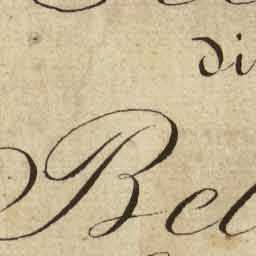 di
Bel